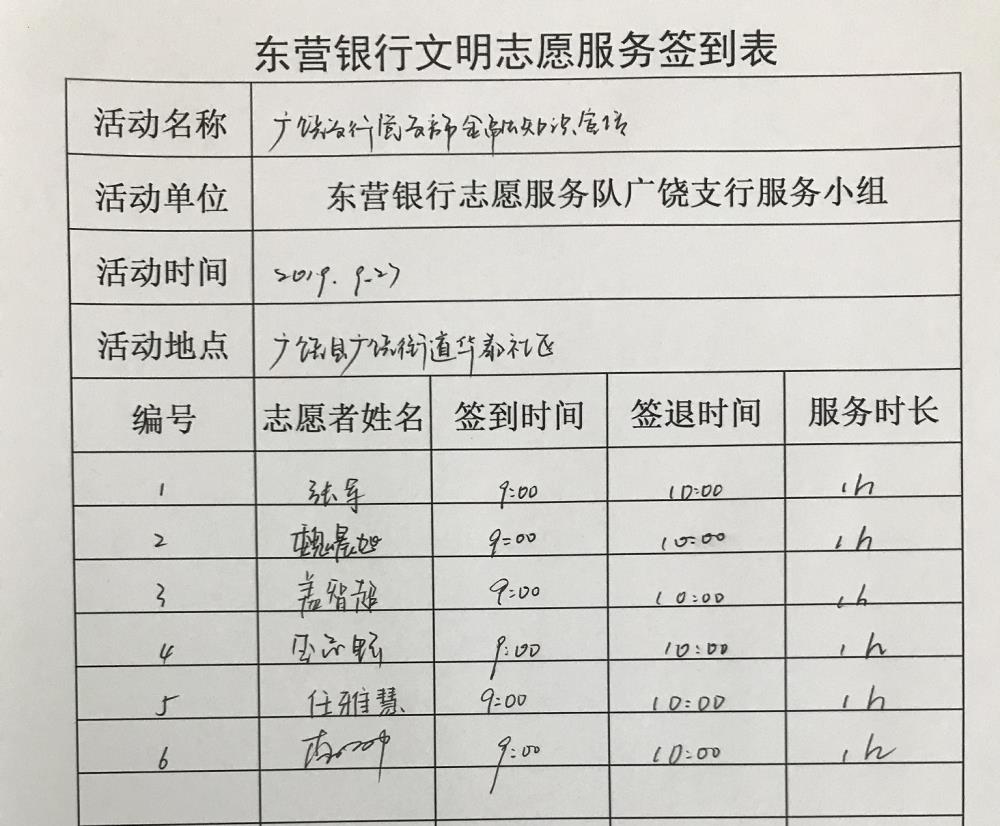 东营银行文明志愿服务签到表
活动名称 广饶支行营业部金融知识宣传
活动单位 东营银行志愿服务队广饶支行服务小组
活动时间 2019.9.27
活动地点 广饶县广饶街道华泰社区
编号 志愿者姓名 签到时间 签退时间 服务时长
1 张军 9:00 10:00 1h
2 魏晨旭 9:00 10:00 1h
3 盖智超 9:00 10:00 1h
4 9:00 10:00 1h
5 任雅慧 9:00 10:00 1h
6 9:00 10:00 1h